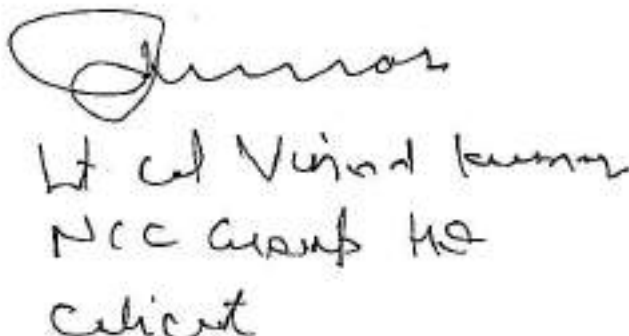 Lt Col Vinod Kumar
NCC Group HQ
Calicut